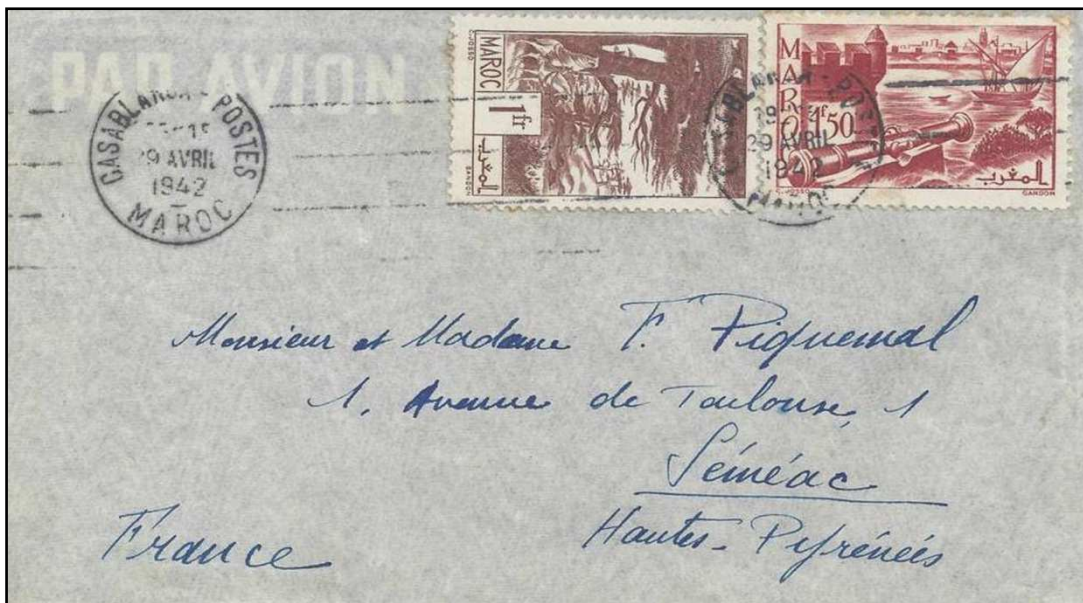 PAR AVION
CASABLANCA - POSTES
29 AVRIL
1942
MAROC
MAROC
1 fr
المغرب
C. JOSSO
GANDON
MAROC
1f50
المغرب
C. JOSSO
GANDON
29 AVRIL
1942
MAROC
Monsieur et Madame F. Piquemal
1, Avenue de Toulouse, 1
Séméac
Hautes-Pyrénées
France